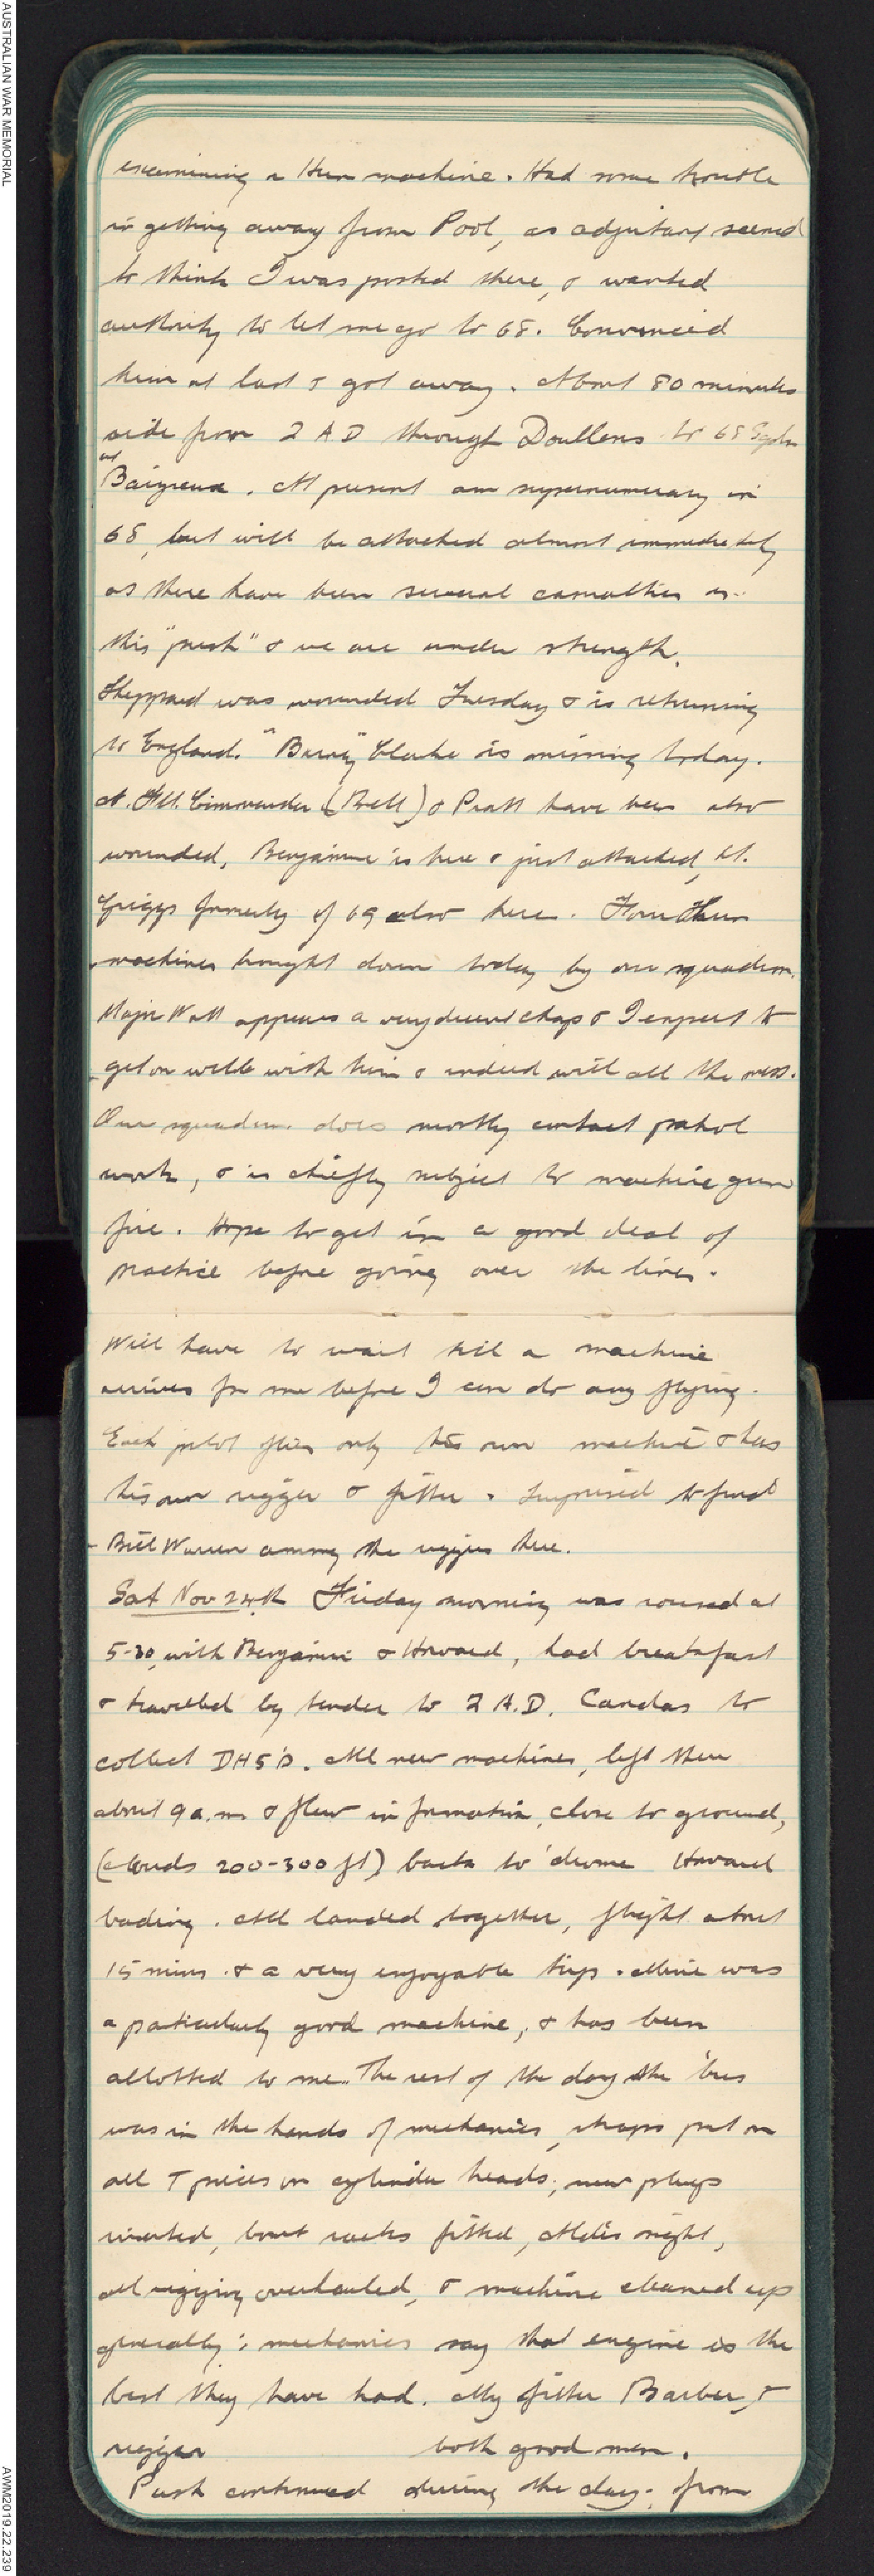 AUSTRALIAN WAR MEMORIAL
examining a Hun machine. Had some trouble
in getting away from Pool, as adjutant seemed
to think I was posted there, & wanted
authority to let me go to 68. Convinced
him at last & got away. About 80 minutes
ride from 2 A D through Doullens to 68 Sqdn
at
Baizieux. At present am supernumerary in
68, but will be attached almost immediately
as there have been several casualties in
this "push" & we are under strength.
Sheppard was wounded Tuesday & is returning
to England. " " Clarke is missing today.
A. Flt. Commander (Bell) & Pratt have been also
wounded, Benjamin is here & just attached, Lt.
Griggs formerly of 69 also here. Four Hun
machines brought down today by our squadron.
Major Watt appears a very decent chap & I expect to
get on well with him & indeed with all the mess.
Our squadron does mostly contact patrol
work, & is chiefly subject to machine gun
fire. Hope to get in a good deal of
practice before going over the lines.
Will have to wait till a machine
arrives for me before I can do any flying.
Each pilot flies only his own machine & has
his own rigger & fitter. Surprised to find
Bill Warren among the riggers here.
Sat Nov 24th Friday morning was roused at
5-30, with Benjamin & Howard, had breakfast
& travelled by tender to 2 A.D. Candas to
collect DH5's. All new machines, left there
about 9 a.m. & flew in formation, close to ground,
(clouds 200-300 ft) back to 'drome Howard
leading. All landed together, flight about
15 mins. & a very enjoyable trip. Mine was
a paticularly good machine, & has been
allotted to me. The rest of the day the 'bus
was in the hands of mechanics, straps put on
all T pieces on cylinder heads, new plugs
inserted, bomb racks fitted, Aldis sight,
all rigging overhauled, & machine cleaned up
generally; mechanics say that engine is the
best they have had. My fitter Barber, &
rigger both good men.
Push continued during the day. from
AWM2019.22.239